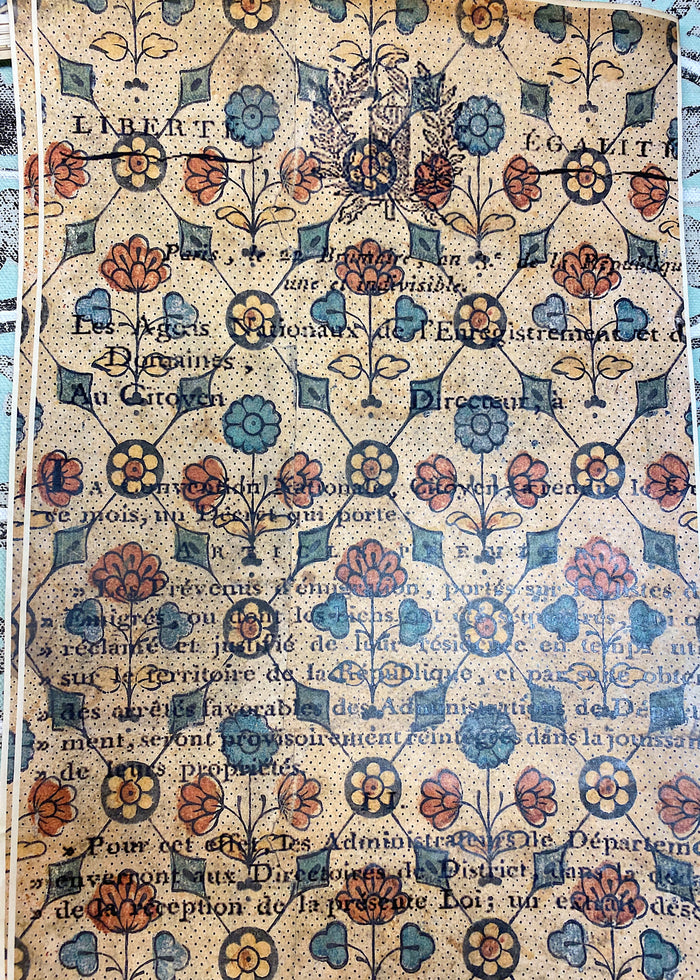 LIBERTÉ ÉGALIT
Paris, le 22 Brumaire, an 3e de la Républiqu
une et indivisible.
Les Agens Nationaux de l'Enregistrement et d
Domaines,
Au Citoyen Directeur, à
LA Convention Nationale, Citoyen, a rendu le
ce mois, un Décret qui porte:
ARTICLE PREMIER
» Les Prévenus d'émigration, portés sur les listes d
» Émigrés, ou dont les biens ont été séquestrés, qui o
» réclamé et justifié de leur résidence en temps uti
» sur le territoire de la République, et par suite obten
» des arrêtés favorables des Administrations de Départe
» ment, seront provisoirement réintégrés dans la jouissan
» de leurs propriétés.
II
» Pour cet effet, les Administrateurs de Départeme
» enverront aux Directoires de District, dans la déc
» de la réception de la présente Loi; un extrait des